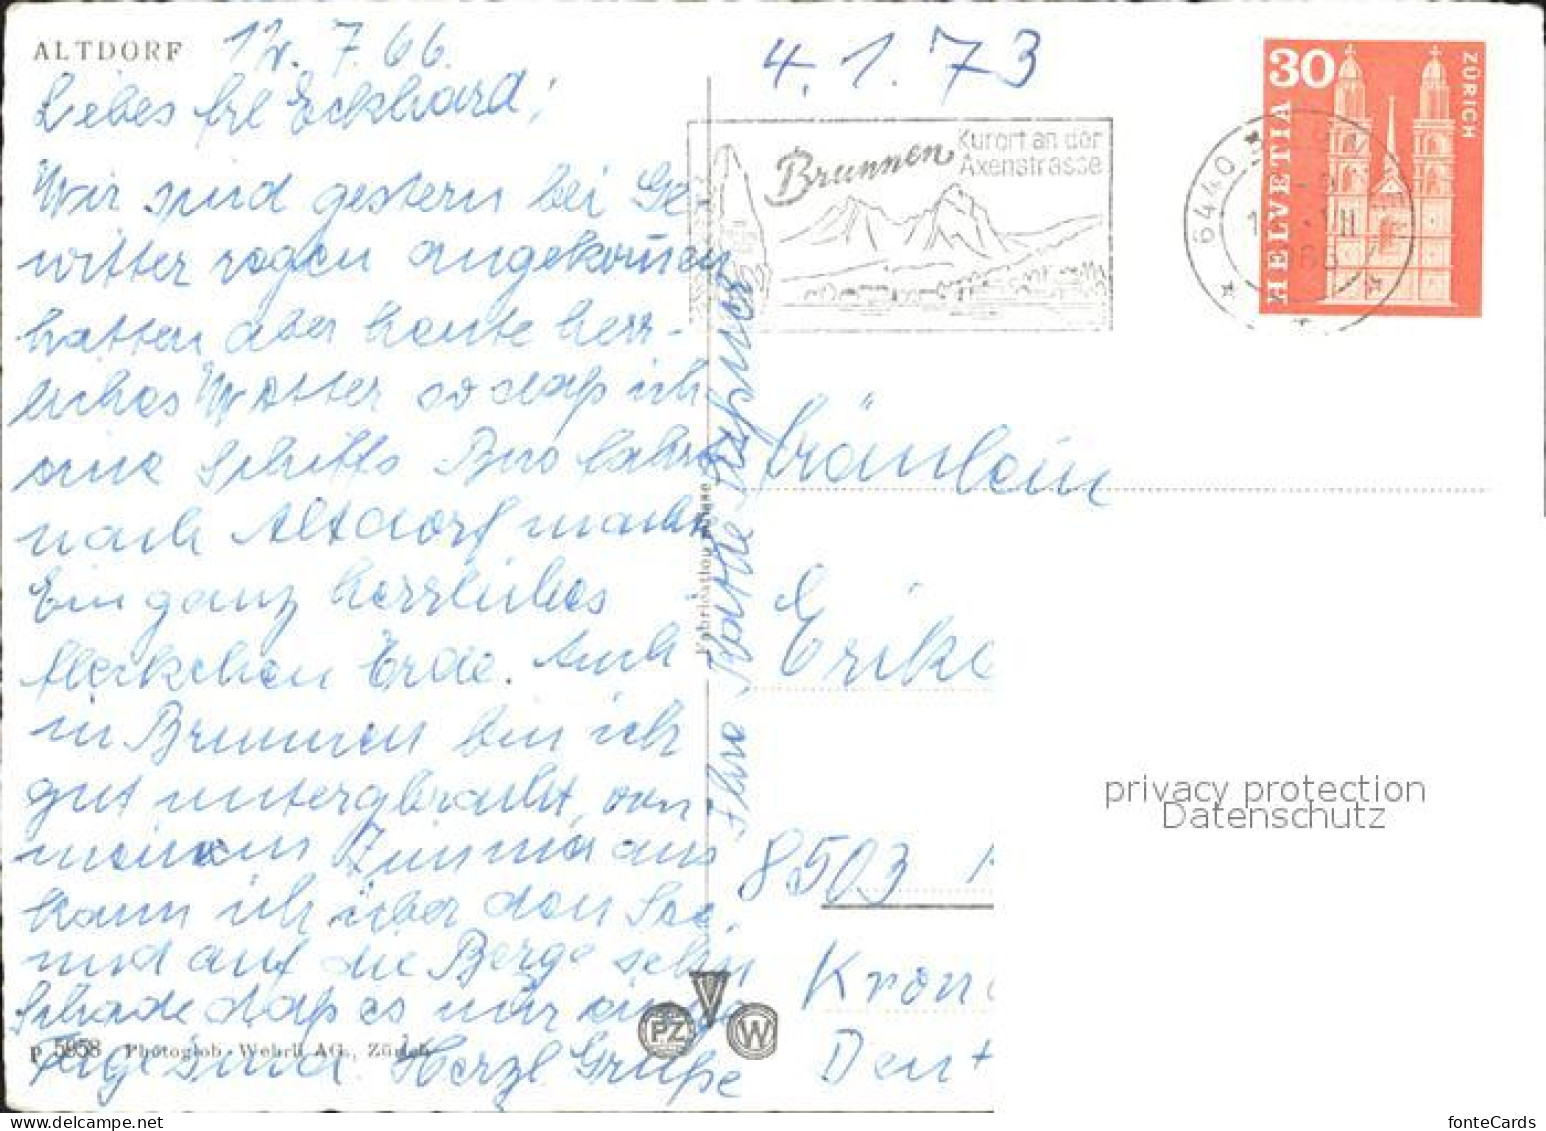 ALTDORF 12. 7. 66.
Liebes Frl Eckhard!
Wir sind gestern bei Ge
witter regen angekommen
hatten aber heute herr-
liches Wetter so daß ich
eine Schiffs
nach Altdorf machte
Ein ganz herrliches
Fleckchen Erde. Auch
in Brunnen bin ich
gut untergebracht, von
meinem Zimmer aus
kann ich über den See
und auf die Berge sehn
Schade daß es nur einige
Tage sind. Herzl Grüße
Ihre Käthe
P 5958 Photoglob-Wehrli AG., Zürich
Fabrication Suisse
PZ W
4. 1. 73
Brunnen
Kurort an der
Axenstrasse
6440
VII
66
30
HELVETIA
ZÜRICH
Fräulein
Erika
8503
Kron
Deut
privacy protection
Datenschutz
fonteCards
delcampe.net